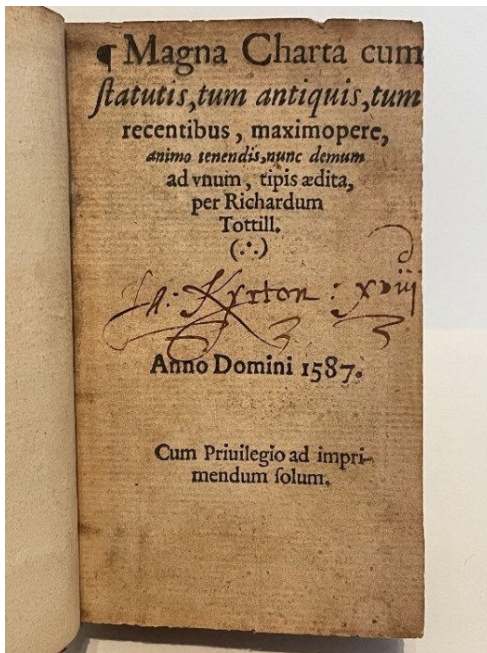 ¶ Magna Charta cum
ſtatutis, tum antiquis, tum
recentibus, maximopere,
animo tenendis, nunc demum
ad vnum, tipis ædita,
per Richardum
Tottill.
(∴)
Ja: Kyrton: xviij
Anno Domini 1587.
Cum Priuilegio ad impri-
mendum ſolum.